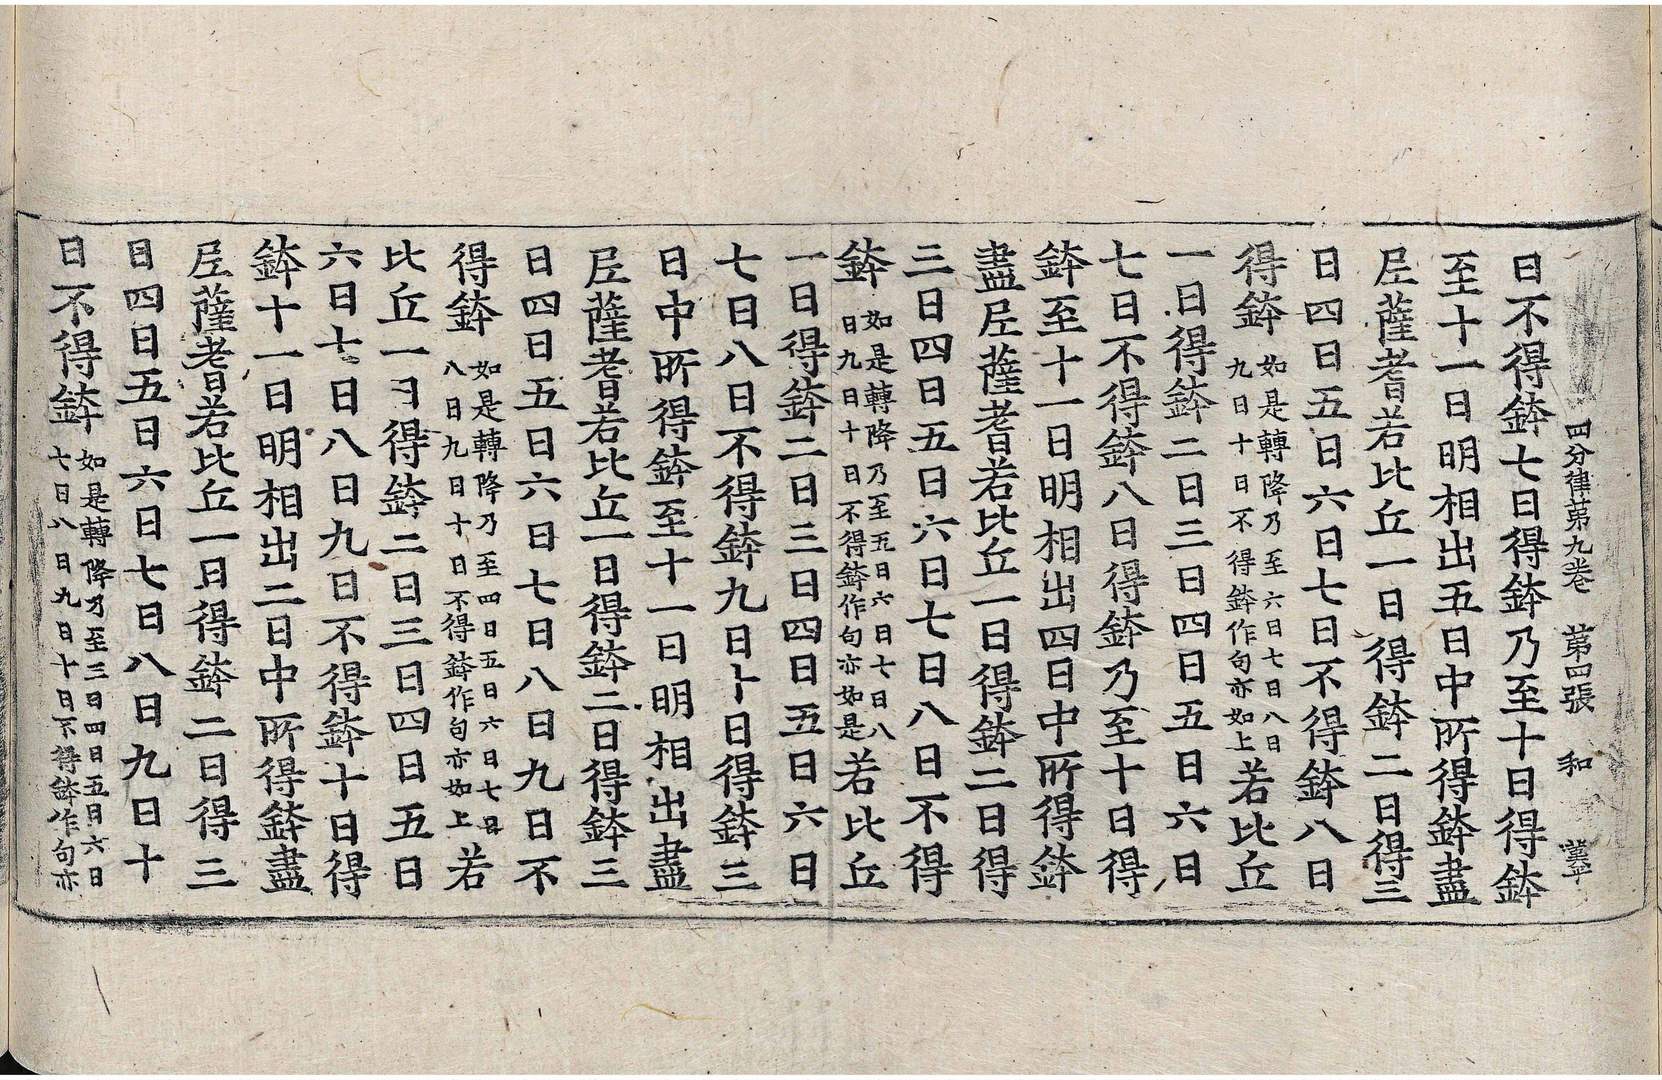 四分律第九卷 第四張 和
日不得鉢七日得鉢乃至十日得鉢
至十一日明相出五日中所得鉢盡
尼薩耆若比丘一日得鉢二日得三
日四日五日六日七日不得鉢八日
得鉢如是轉降乃至六日七日八日九日十日不得鉢作句亦如上若比丘
一日得鉢二日三日四日五日六日
七日不得鉢八日得鉢乃至十日得
鉢至十一日明相出四日中所得鉢
盡尼薩耆若比丘一日得鉢二日得
三日四日五日六日七日八日不得
鉢如是轉降乃至五日六日七日八日九日十日不得鉢作句亦如是若比丘
一日得鉢二日三日四日五日六日
七日八日不得鉢九日十日得鉢三
日中所得鉢至十一日明相出盡
尼薩耆若比丘一日得鉢二日得鉢三
日四日五日六日七日八日九日不
得鉢如是轉降乃至四日五日六日七日八日九日十日不得鉢作句亦如上若
比丘一日得鉢二日三日四日五日
六日七日八日九日不得鉢十日得
鉢十一日明相出二日中所得鉢盡
尼薩耆若比丘一日得鉢二日得三
日四日五日六日七日八日九日十
日不得鉢如是轉降乃至三日四日五日六日七日八日九日十日不得鉢作句亦